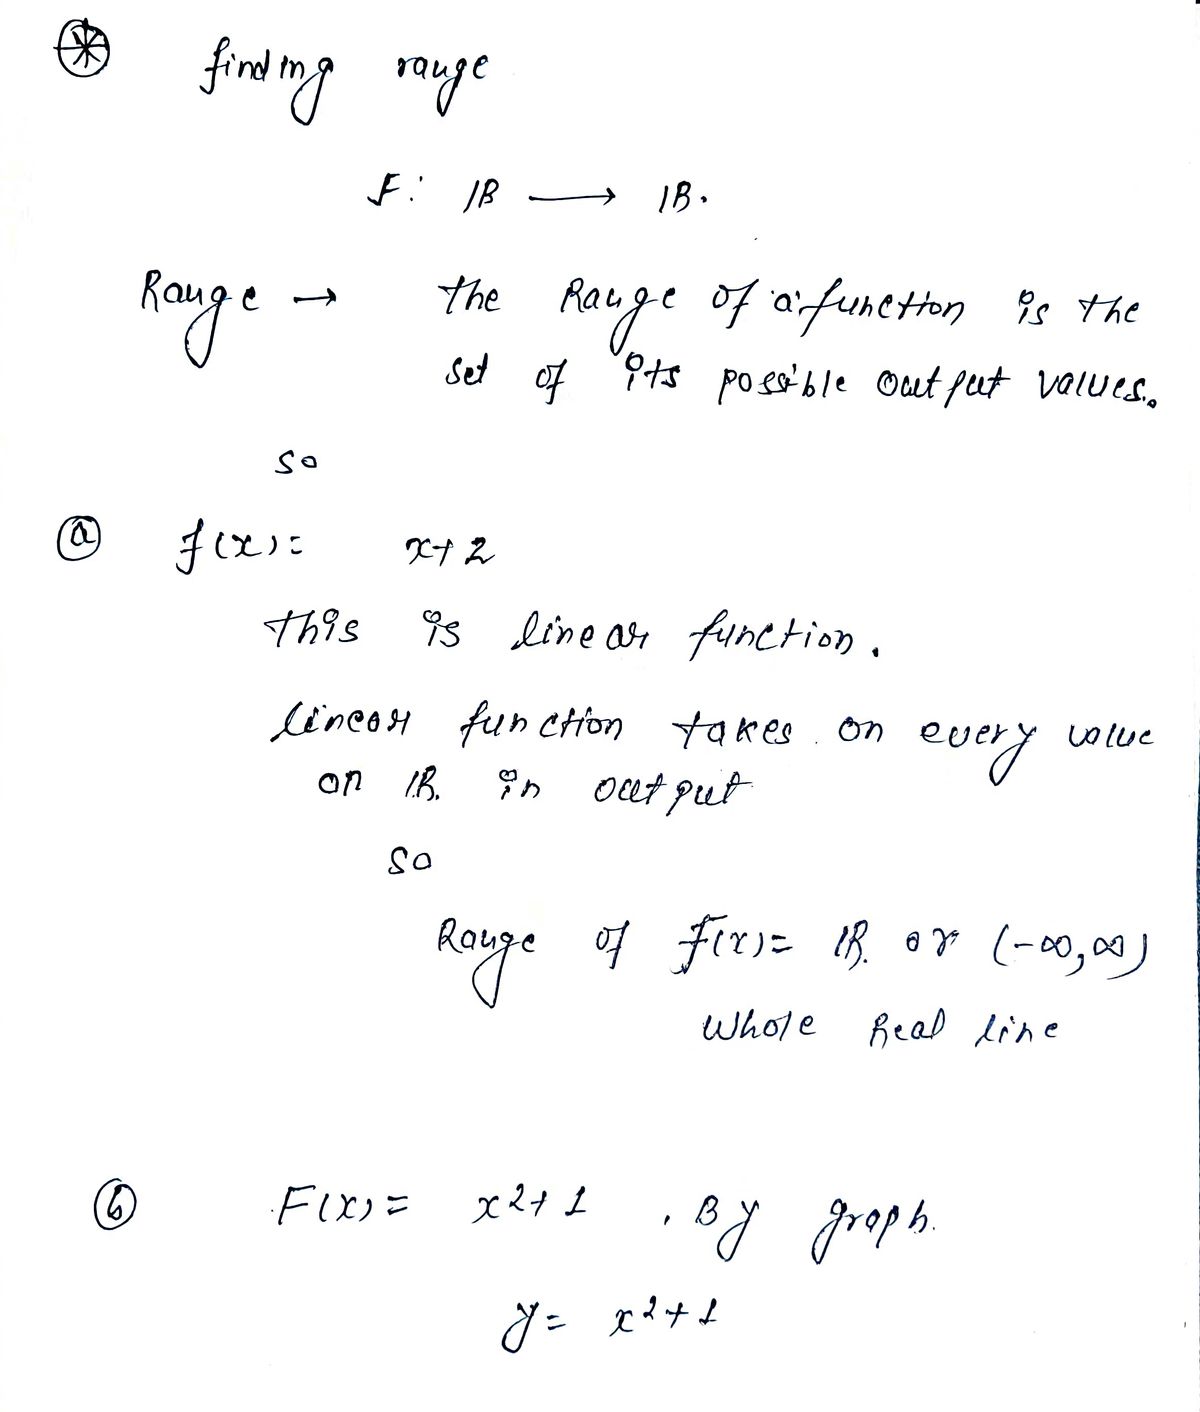 finding range
F: IR → IR.
Range → the Range of a function is the
set of its possible output values.
so
(a) f(x)= x+2
this is linear function.
linear function takes on every value
on IR. in output
so
Range of F(x)= IR. or (-∞,∞)
Whole Real line
(b) F(x)= x2+1 , By graph.
y= x²+1